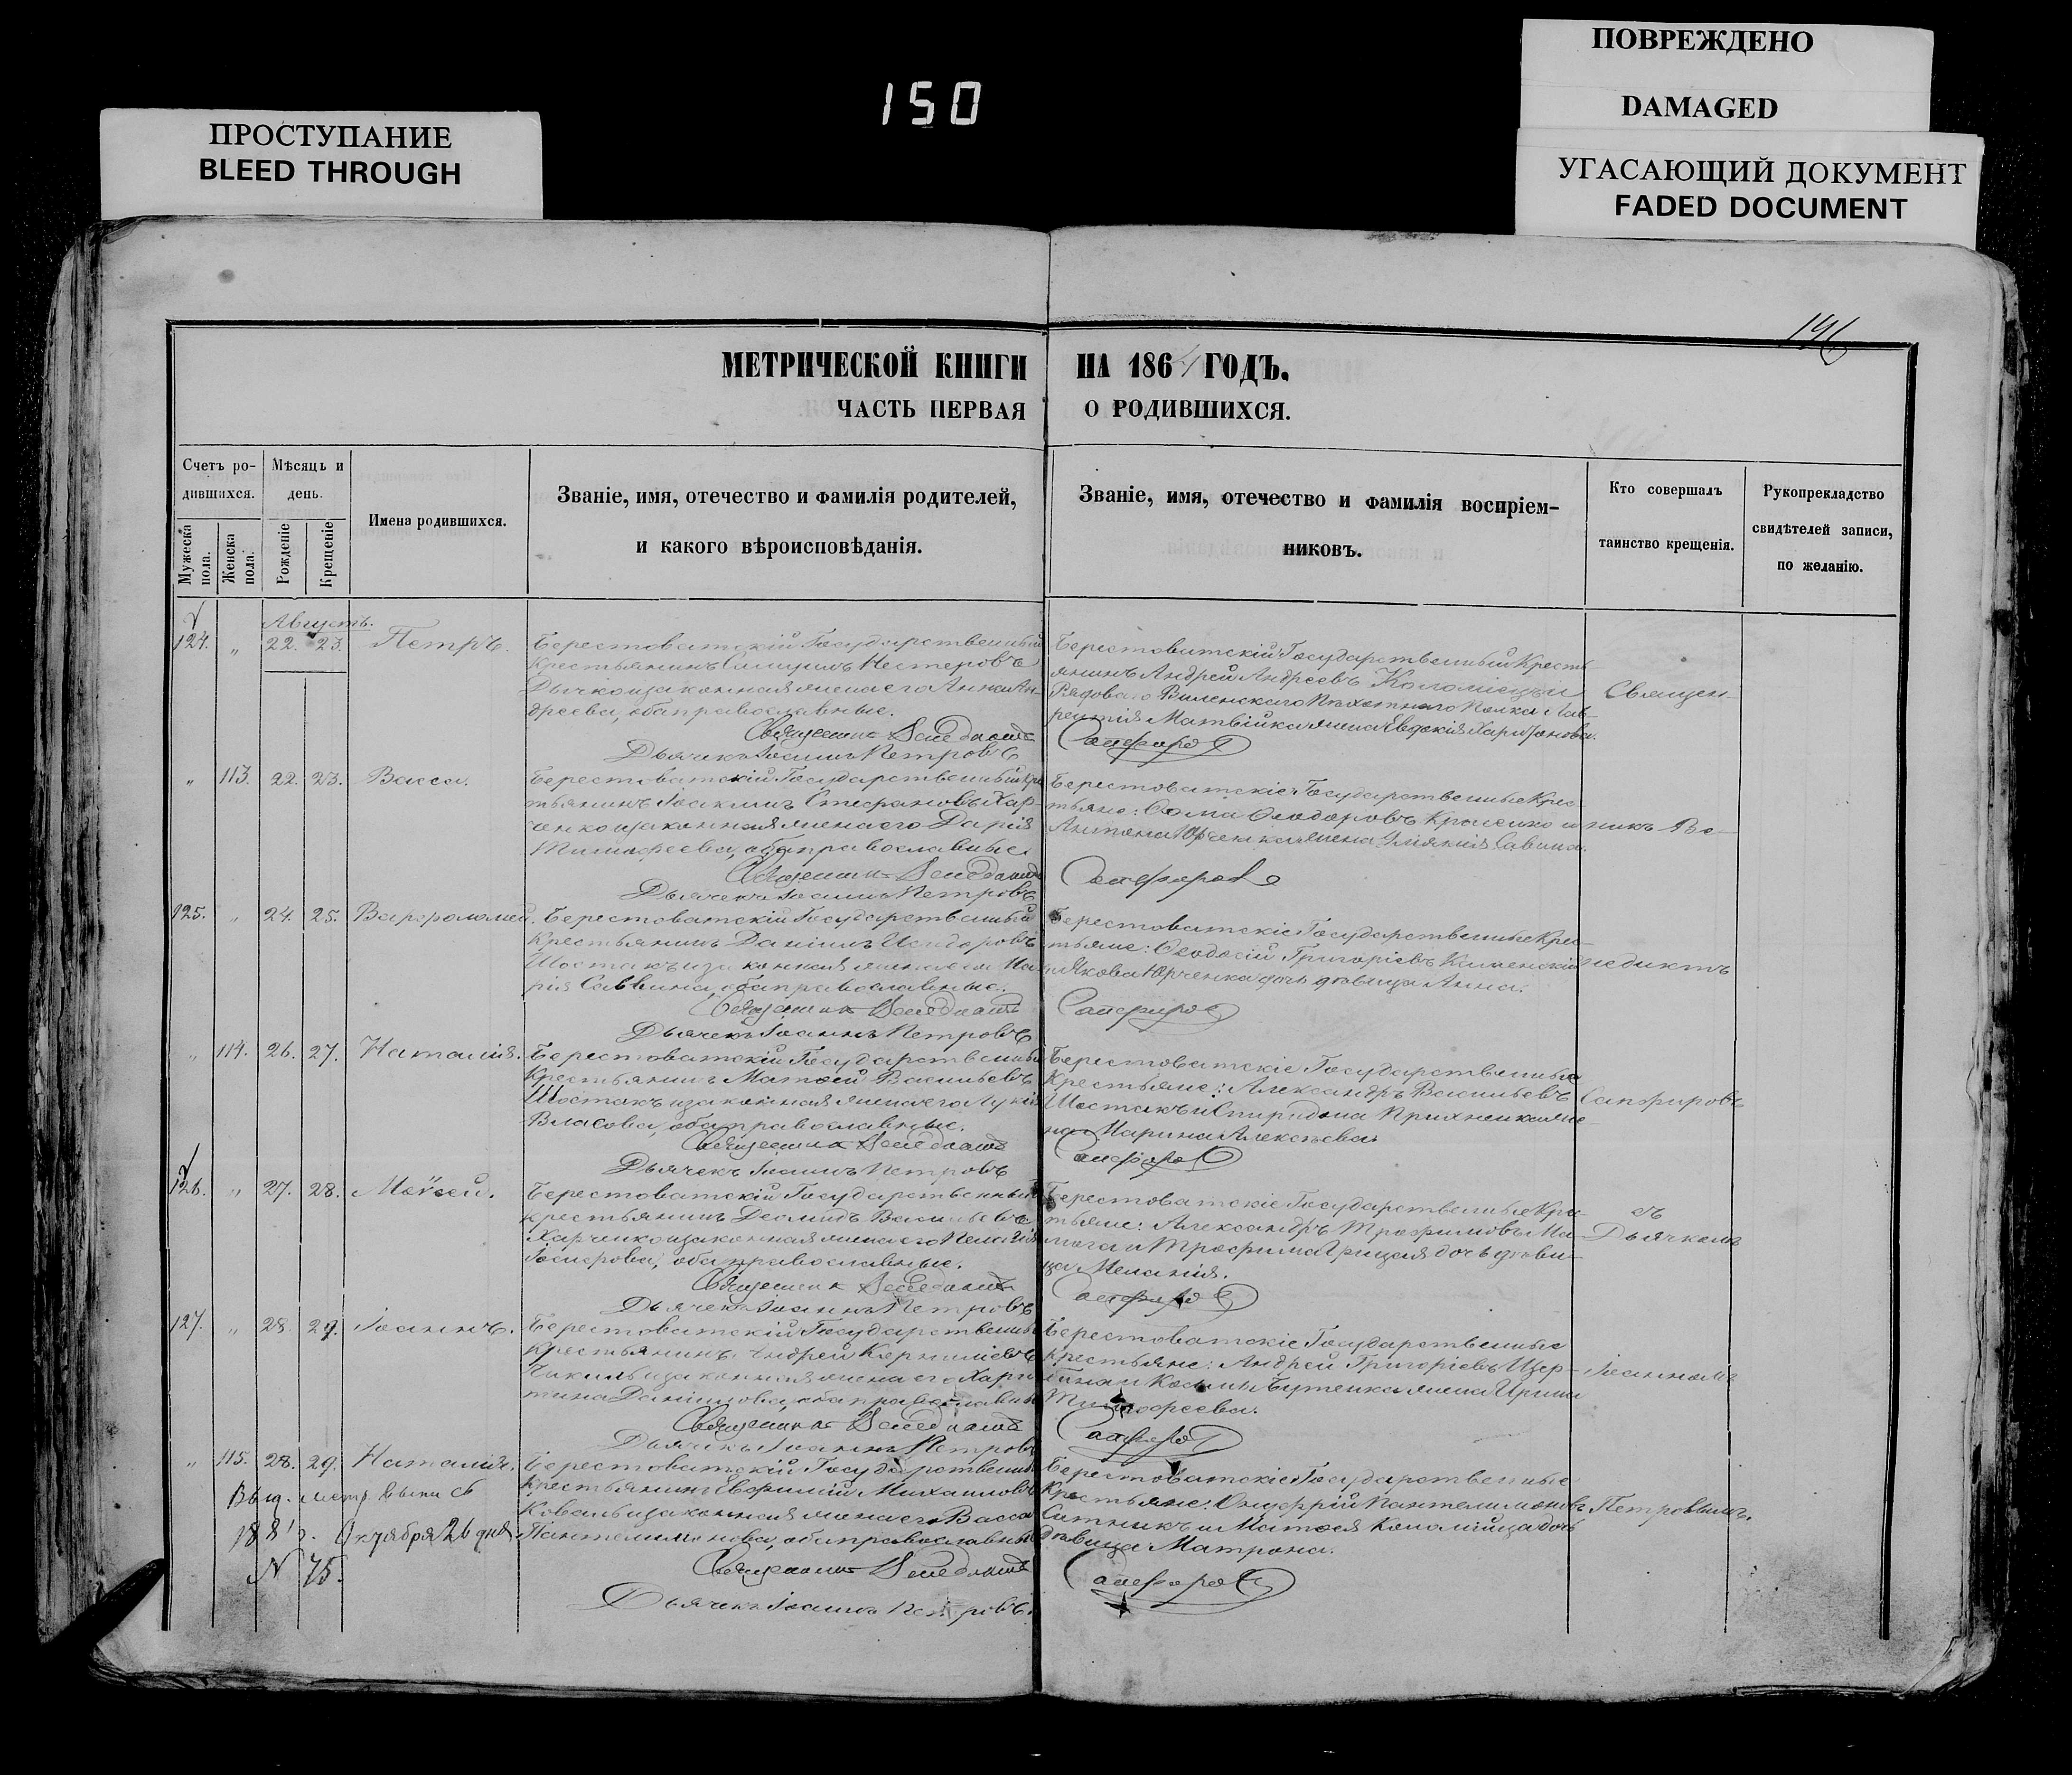 ПОВРЕЖДЕНО
DAMAGED
150
ПРОСТУПАНИЕ
BLEED THROUGH
УГАСАЮЩИЙ ДОКУМЕНТ
FADED DOCUMENT
196
МЕТРИЧЕСКОЙ КНИГИ НА 1864 ГОДЪ.
ЧАСТЬ ПЕРВАЯ О РОДИВШИХСЯ.
Счетъ ро-
дившихся.
Мужеска пола.
Женска пола.
Мѣсяць и
день.
Рожденіе
Крещеніе
Имена родившихся.
Званіе, имя, отечество и фамилія родителей,
и какого вѣроисповѣданія.
Званіе, имя, отечество и фамилія воспріем-
никовъ.
Кто совершалъ
таинство крещенія.
Рукоприкладство
свидѣтелей записи,
по желанію.
Августъ.
124. „ 22. 23. Петръ.
Берестоватскій Государственный
Крестьянинъ Нестеровъ
Дычко и законная жена его Анна Ан-
дреева, оба православные.
Священникъ Венедиктъ
Дьячекъ Іоаннъ Петровъ
Берестоватскій Государственный Кресть-
янинъ Андрей Андреевъ Коломіецъ и
Рядоваго Виленскаго Пѣхотнаго Полка Лав-
рентія Матвійка жена Евдокія Харитонова.
Сапфировъ
„ 113. 22. 23. Васса.
Берестоватскій Государственный Кре-
тьянинъ Іоакимъ Стефановъ Хар-
ченко и законная жена его Дарія
Тимофеева, оба православные.
Священникъ Венедиктъ
Дьячекъ Іоаннъ Петровъ
Берестоватскіе Государственные Крес-
тьяне: Ѳома Ѳеодоровъ и
Антона Юрченка жена Савина.
Сапфировъ
125. „ 24. 25. Варфоломей.
Берестоватскій Государственный
Крестьянинъ Даніилъ Исидоровъ
Шостакъ и законная жена его Ма-
рія Саввина, оба православные.
Священникъ Венедиктъ
Дьячекъ Іоаннъ Петровъ
Берестоватскіе Государственные Крес-
тьяне: Ѳеодосій Григоріевъ
и Якова Юрченка дочь дѣвица Анна.
Сапфировъ
„ 114. 26. 27. Наталія.
Берестоватскій Государственный
Крестьянинъ Матѳей Васильевъ
Шостакъ и законная жена его Лукія
Власова, оба православные.
Священникъ Венедиктъ
Дьячекъ Іоаннъ Петровъ
Берестоватскіе Государственные
Крестьяне: Александръ Васильевъ
Шостакъ и Спиридона Прихненка же-
на Марина Алексѣева.
Сапфировъ
126. „ 27. 28. Моѵсей.
Берестоватскій Государственный
крестьянинъ Деомидъ Васильевъ
Харченко и законная жена его Пелагія
Іосифова, оба православные.
Священникъ Венедиктъ
Дьячекъ Іоаннъ Петровъ
Берестоватскіе Государственные Крес-
тьяне: Александръ Трофимовъ
и Трофима Грицая дочь дѣви-
ца Меланія.
Сапфировъ
127. „ 28. 29. Іоаннъ.
Берестоватскій Государственный
Крестьянинъ Андрей Корниліевъ
Чикиль и законная жена его Хари-
тина Даніилова, оба православные
Священникъ Венедиктъ
Дьячекъ Іоаннъ Петровъ
Берестоватскіе Государственные
крестьяне: Андрей Григоріевъ Щер-
бина и Космы Бутенка жена Ирина
Тимофеева.
Сапфировъ
„ 115. 28. 29. Наталія.
Выд. метр. выпись
1881 г. Октября 26 дня
N 75.
Берестоватскій Государственный
Крестьянинъ Евфимій Михаиловъ
Коваль и законная жена его Васса
Пантелимонова, оба православные
Священникъ Венедиктъ
Дьячекъ Іоаннъ Петровъ.
Берестоватскіе Государственные
Крестьяне: Онуфрій Пантелимоновъ
Ситникъ и Матѳея Коломійца дочь
дѣвица Матрона.
Сапфировъ
Священ-
никъ Ве-
недиктъ
Сапфировъ
съ
Дьячкомъ
Іоанномъ
Петровымъ.